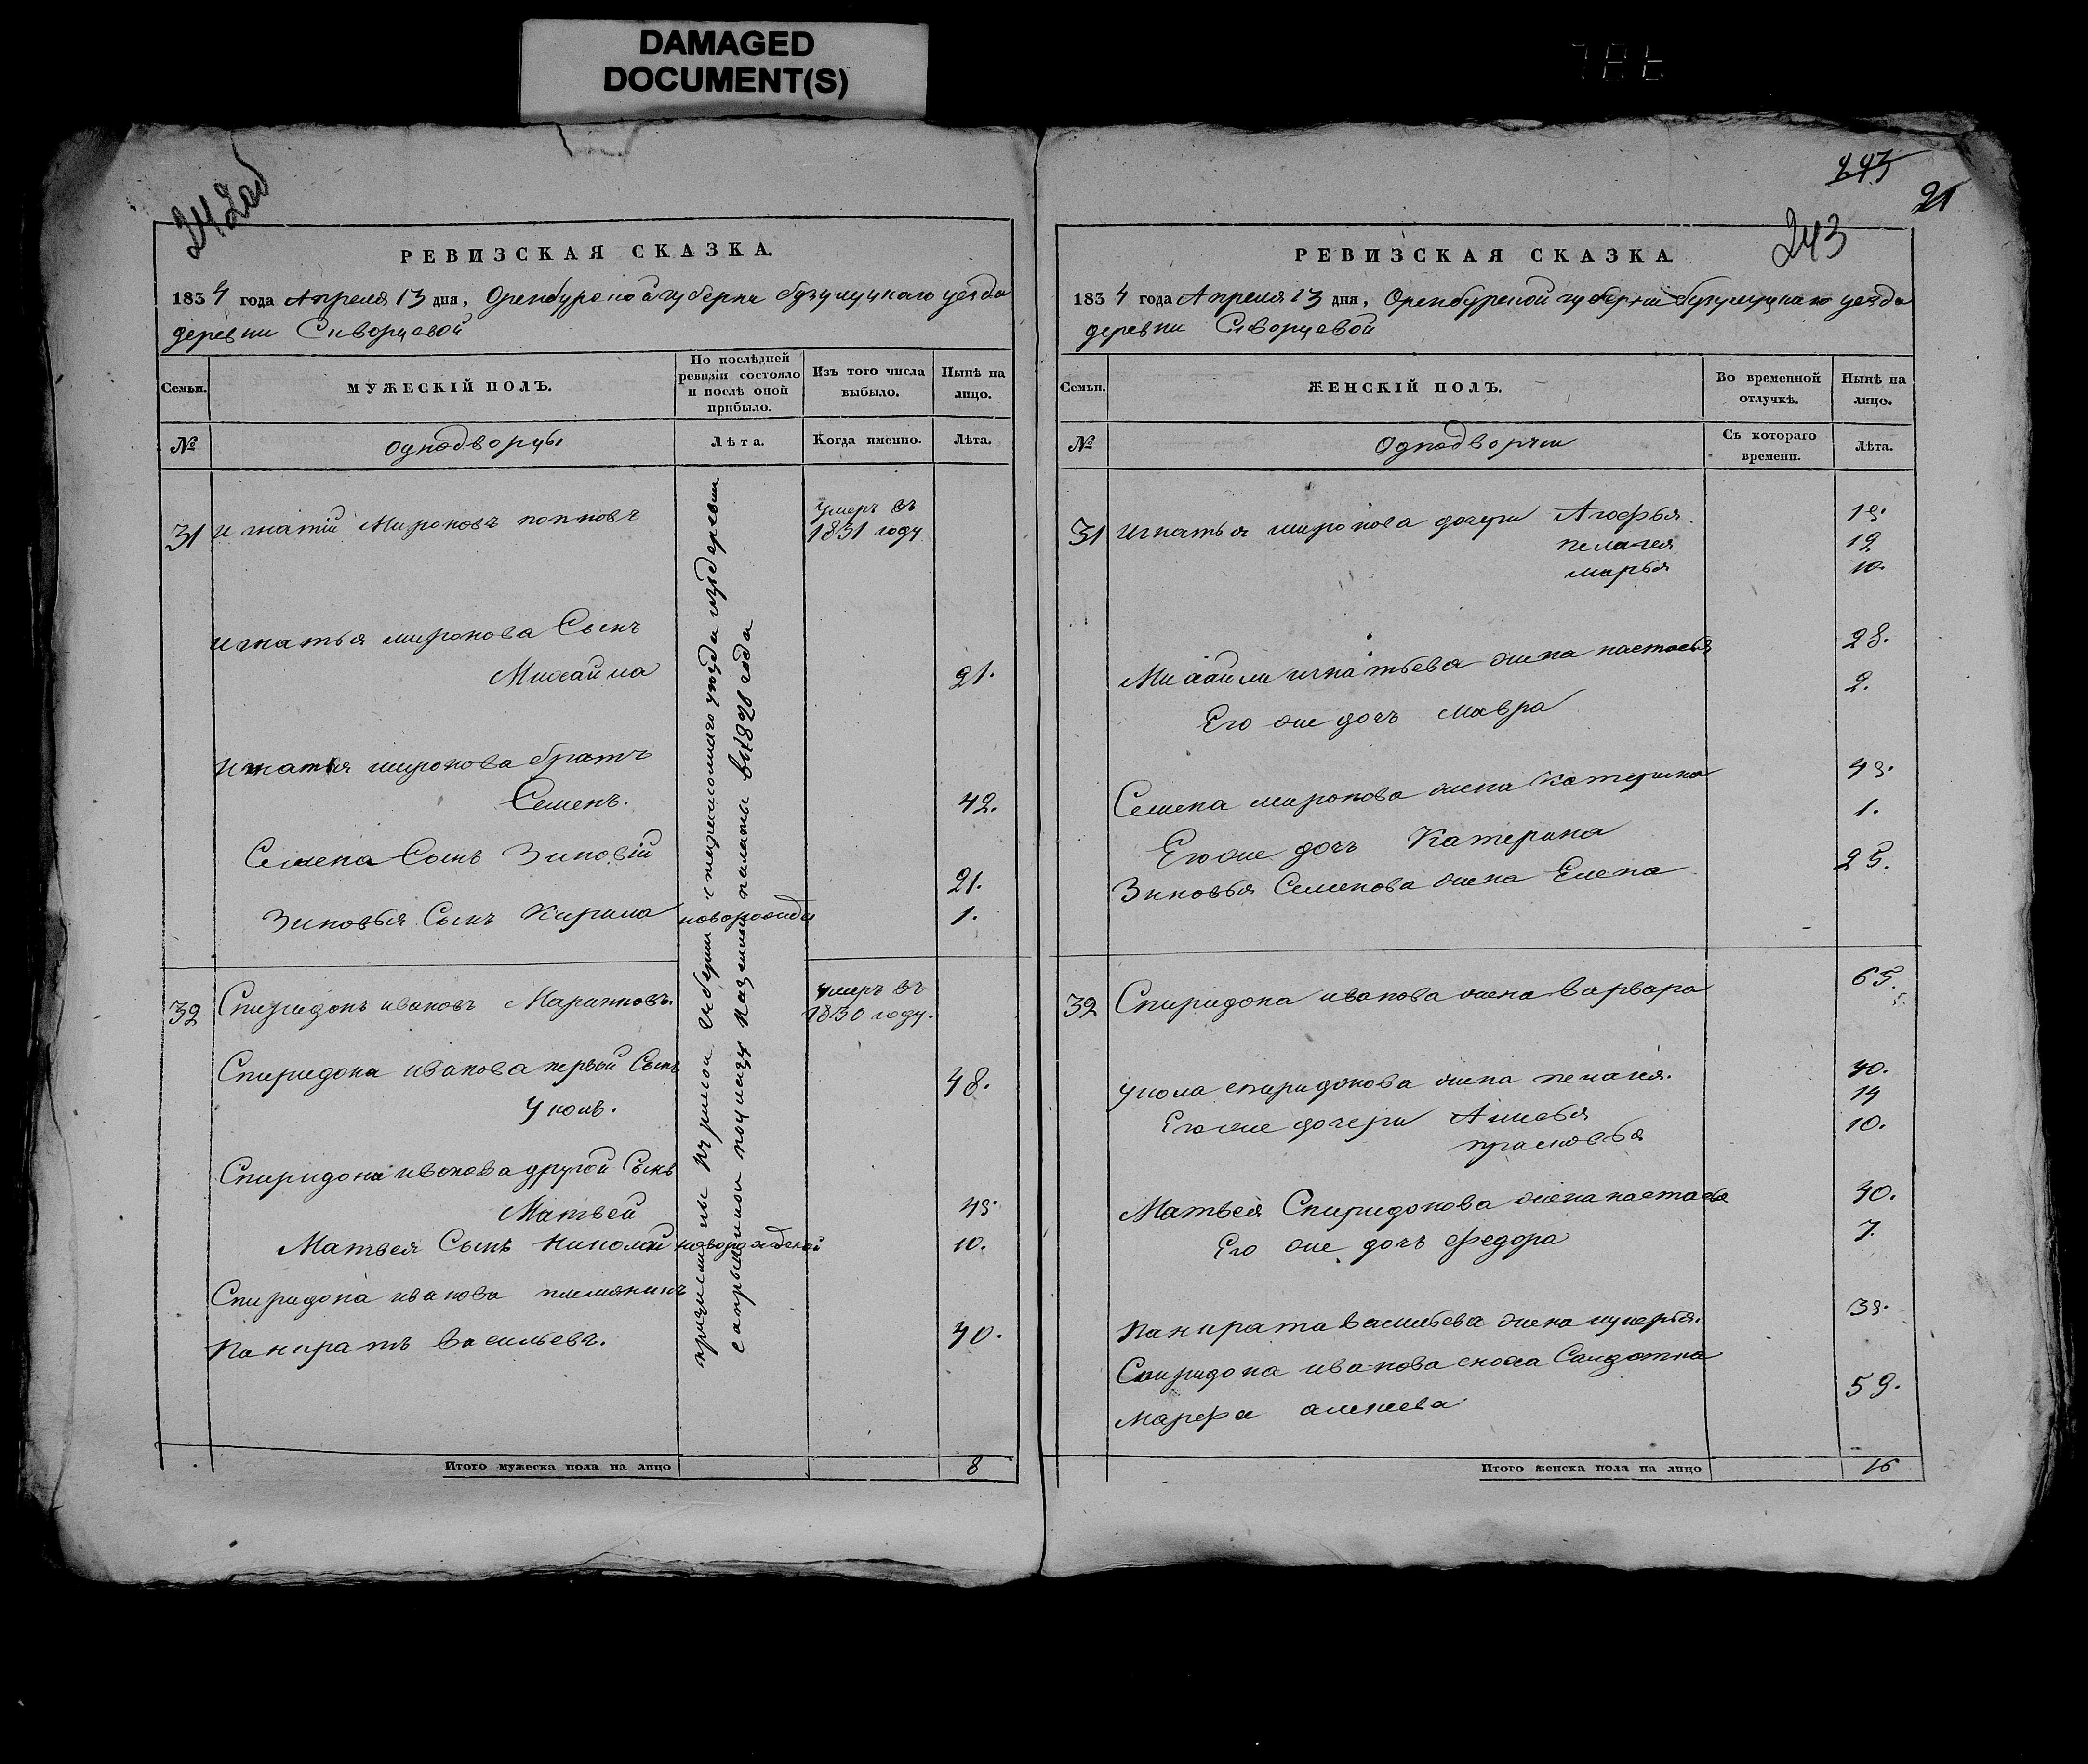 DAMAGED
DOCUMENT(S)
242об
РЕВИЗСКАЯ СКАЗКА.
1834 года Апреля 13 дня, Оренбурской губерни бузулуцкаго уезда
деревни Скворцевой
Семьи.
МУЖЕСКІЙ ПОЛЪ.
По послѣдней
ревизіи состояло
и послѣ оной
прибыло.
Изъ того числа
выбыло.
Нынѣ на
лицо.
№
Однодворцы
Лѣта.
Когда именно.
Лѣта.
31 Игнатій Мироновъ поповъ
умеръ въ
1831 году
Игнатья миронова Сынъ
Михайла 21.
Игнатья миронова братъ
Семенъ. 42.
Семена Сынъ Зиновій 21.
Зиновья Сынъ Кирила новорожде 1.
32 Спиридонъ ивановъ Маринковъ.
умеръ въ
1830 году.
Спиридона иванова первой Сынъ
Уколъ. 48.
Спиридона иванова другой Сынъ
Матвей 45
Матвея Сынъ Николай новорожденой 10.
Спиридона иванова племянникъ
Панкратъ васильевъ. 40.
губерни уезда из деревни
казенной палаты въ 1828 года
Итого мужеска пола на лицо 8
243
21
243
РЕВИЗСКАЯ СКАЗКА.
1834 года Апреля 13 дня, Оренбурской губерни бузулуцкаго уезда
деревни Скворцевой
Семьи.
ЖЕНСКІЙ ПОЛЪ.
Во временной
отлучкѣ.
Нынѣ на
лицо.
№
Однодворки
Съ котораго
времени.
Лѣта.
31 Игнатья миронова дочери Агофья 15.
пелагея 12
марья 10.
Михайли игнатьева жена настасья 28.
Его же дочь мавра 2.
Семена миронова жена катерина 45.
Его же дочь Катерина 1.
Зиновья Семенова жена Елена 25.
32 Спиридона иванова жена варвара 65.
Укола спиридонова жена пелагея. 40.
Его же дочери Анисья 14
прасковья 10.
Матвея Спиридонова жена настасья 40.
Его же дочь федора 7.
Панкрата васильева жена лукерья. 35.
Спиридона иванова сноха Салдатка
марфа 59.
Итого женска пола на лицо 16